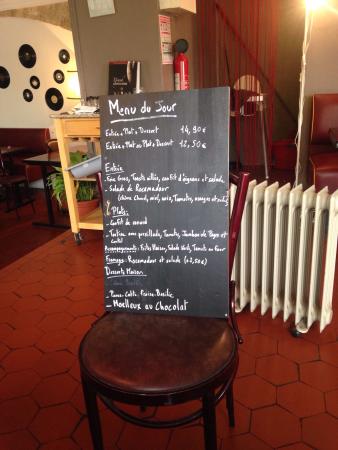 Menu du Jour
Entrée + Plat + Dessert 14,90€
Entrée + Plat ou Plat + Dessert 12,50€
Entrée
- Foie Gras, Toasts aillés, confit d'oignons et salade
- Salade de Rocamadour
(chèvre chaud, miel, noix, Tomates, oranges et
Plats:
- Confit de canard
- Tartine avec persillade, Tomates, Jambon de Pays et
Cantal
Accompagnements: Frites Maison, Salade Verte, Tomate au Four
Fromage: Rocamadour et salade (+2,50€)
Desserts Maison
- Panna-Cotta, Fraise-Basilic
- Moelleux au Chocolat